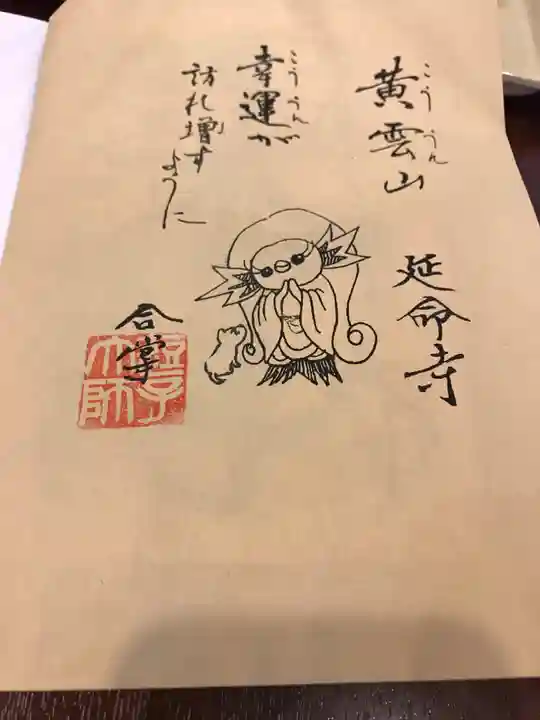 こううん
黄雲山
延命寺
こううん
幸運が
訪れ増す
ように
合掌
大師